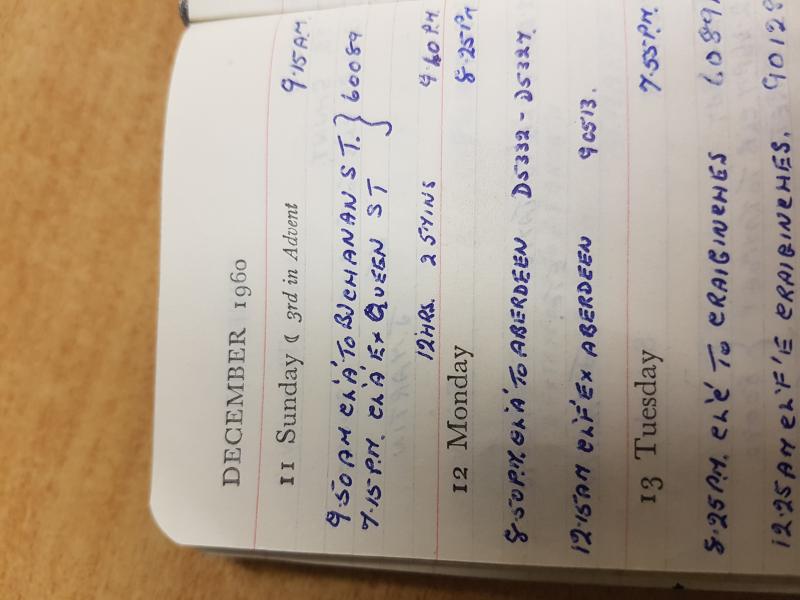 DECEMBER 1960
11 Sunday ( 3rd in Advent 9.15 A.M.
9.50 AM CL'A' TO BUCHANAN ST. } 60089
7.15 P.M. CL'A' EX QUEEN ST
12 HRS. 25 MINS 9.40 PM
12 Monday 8.25 PM
8.50 P.M. CL'A' TO ABERDEEN D5332 - D5327.
12.15 AM CL'F' EX ABERDEEN 90513.
13 Tuesday 7.55 P.M.
8.25 P.M. CL'C' TO CRAIGINCHES 6089
12.25 AM CL'F' E CRAIGINCHES. 9012